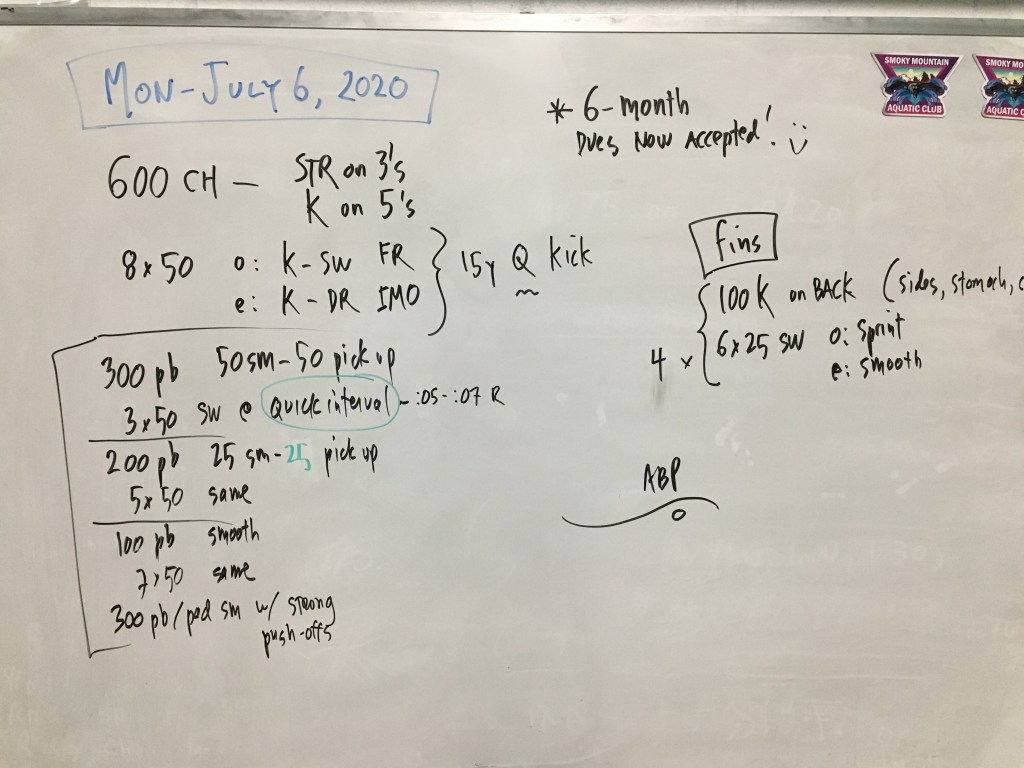 MON-JULY 6, 2020
600 CH - STR on 3's
K on 5's
8x50 o: K-SW FR
e: K-DR IMO
15y Q Kick
300 pb 50sm-50 pick up
3x50 SW @ Quick interval - :05-:07 R
200 pb 25 sm-25 pick up
5x50 same
100 pb smooth
7x50 same
300 pb/pad sm w/ strong
push-offs
* 6-month
Dues Now Accepted!
fins
4 x
100 K on BACK (sides, stomach,
6x25 SW o: Sprint
e: smooth
ABP
SMOKY MOUNTAIN
AQUATIC CLUB
SMOKY MO
AQUATIC C